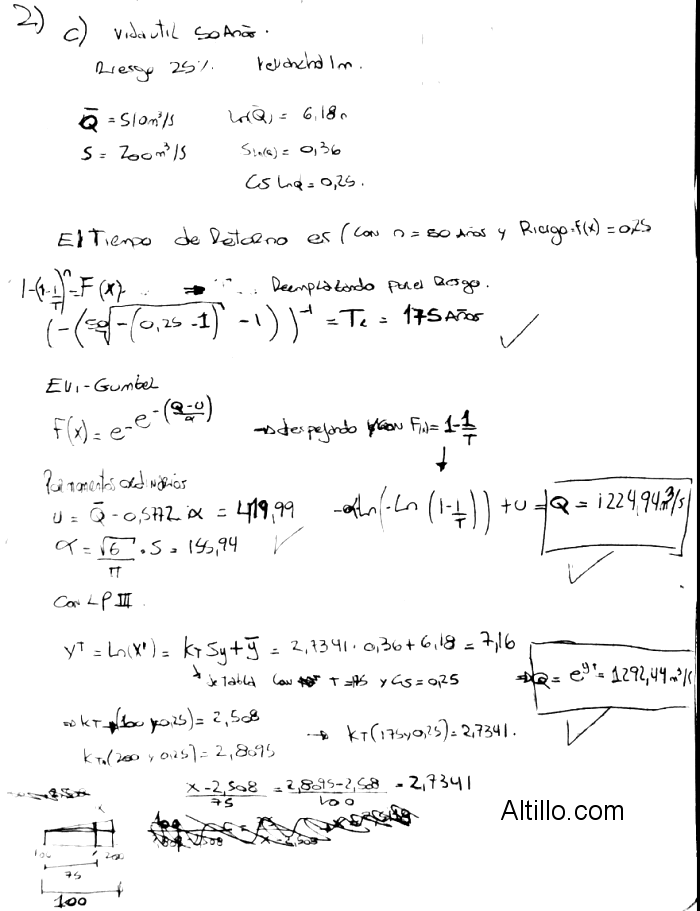 2) c) Vida util 50 Años.
Riesgo 25% revancha 1m.
Q̄ = 510 m³/s ln(Q) = 6,18
S = 200 m³/s Sln(Q) = 0,36
Cs LnQ = 0,25.
El Tiempo de Retorno es (Con n = 50 Años y Riesgo = F(x) = 0,25
1-(1-1/T)^n = F(x) ⇒ Reemplazando por el Riesgo.
(-(⁵⁰√-(0,25-1) -1))^-1 = Tr = 175 Años
EV1-Gumbel
F(x) = e^-e^-((Q-U)/α) → despejando con F(x) = 1-1/T
Por momentos ordinarios
U = Q̄ - 0,5772 α = 419,99 -αLn(-Ln(1-1/T)) + U = Q = 1224,94 m³/s
α = √6/π · S = 155,94
Con LP III.
y^T = Ln(x^T) = K_T Sy + ȳ = 2,7341 · 0,36 + 6,18 = 7,16
de Tabla Con T = 175 y Cs = 0,25 ⇒ Q = e^yT = 1292,44 m³/s
⇒ K_T (100 y 0,25) = 2,508
K_T (200 y 0,25) = 2,8095 → K_T (175 y 0,25) = 2,7341.
x - 2,508 / 75 = 2,8095 - 2,508 / 100 = 2,7341
x
100 200
75
100
Altillo.com